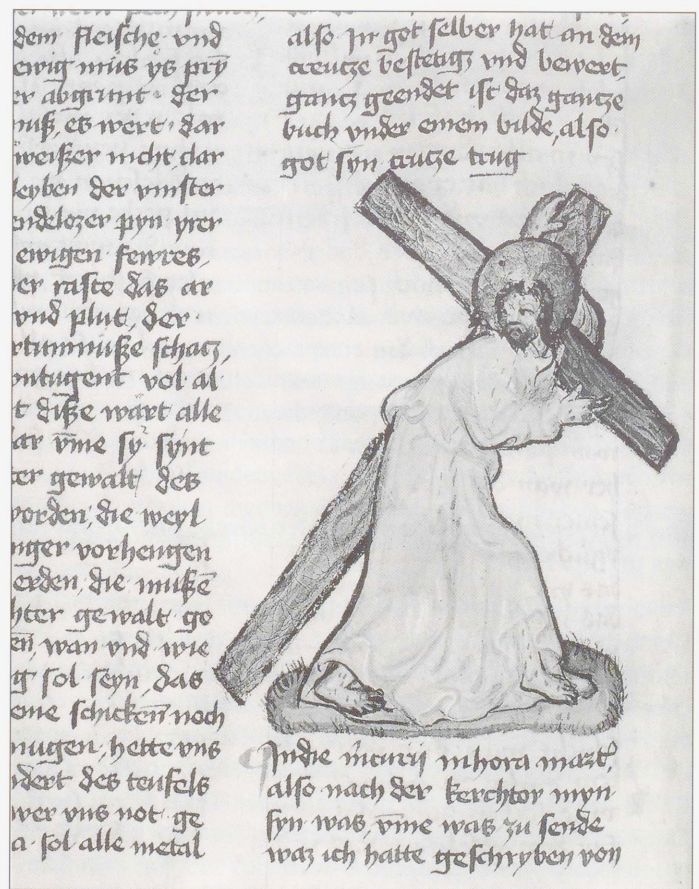 dem fleische vnd
ewig mus ys pry
er abgrunt · der
nuß, es wert · dar
weißer nicht, dar
leyben der vinster
endelozer pyn yrer
ewigen fewres
er raste das ar
vnd plut, der
rtumnuße schatz,
ontugent vol al
t diße wart alle
ar vm̄e sy synt
er gewalt, des
worden, die weyl
nger vorhengen
erden, die mußē
hter gewalt ge
en̄, wan vnd wie
g sol seyn, das
eine schicken̄ noch
mugen, hette vns
ndert des teufels
wer vns not ge
a · sol alle metal
also In got selber hat an dem
creutze bestetigt vnd bewert,
gantz geendet ist daz gantze
buch vnder einem bilde, also ·
got syn crutze trug
In die m̄curij in hora
also nach der kerchtor myn
syn was, vm̄e waz zu sende
waz ich hatte geschryben von